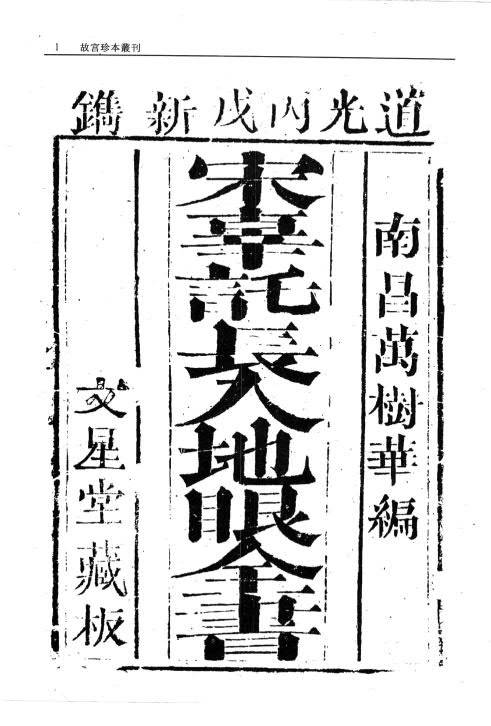 1 故宮珍本叢刊
道光丙戌新鐫
南昌萬樹華編
宋辜託長入地眼全書
文星堂藏板